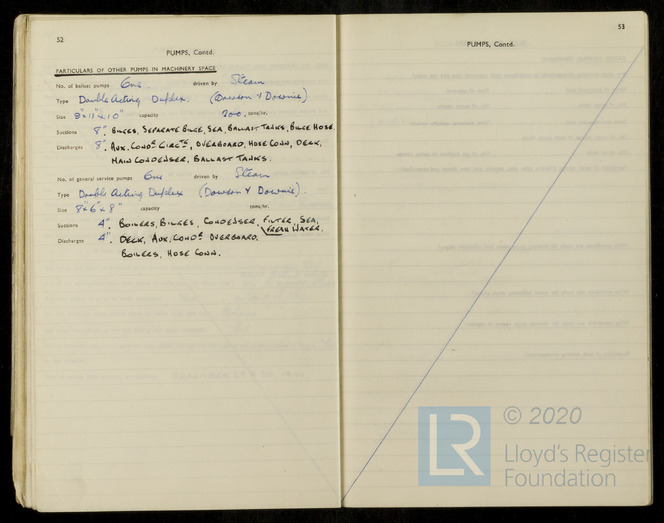 52
PUMPS, Contd.
PARTICULARS OF OTHER PUMPS IN MACHINERY SPACE
No. of ballast pumps One. driven by Steam
Type Double Acting Duplex. (Dawson & Downie)
Size 9"x11"x10" capacity 200. tons/hr.
Suctions 8". BILGES, SEPARATE BILGE, SEA, BALLAST TANKS, BILGE HOSE.
Discharges 8". AUX. CONDR CIRCTG, OVERBOARD, HOSE CONN, DECK,
MAIN CONDENSER, BALLAST TANKS.
No. of general service pumps One driven by Steam
Type Double Acting Duplex (Dawson & Downie).
Size 8"x6"x8" capacity tons/hr.
Suctions 4". BOILERS, BILGES, CONDENSER, FILTER, SEA,
FRESH WATER.
Discharges 4". DECK, AUX. CONDR OVERBOARD.
BOILERS, HOSE CONN.
53
PUMPS, Contd.
LR
© 2020
Lloyd's Register
Foundation